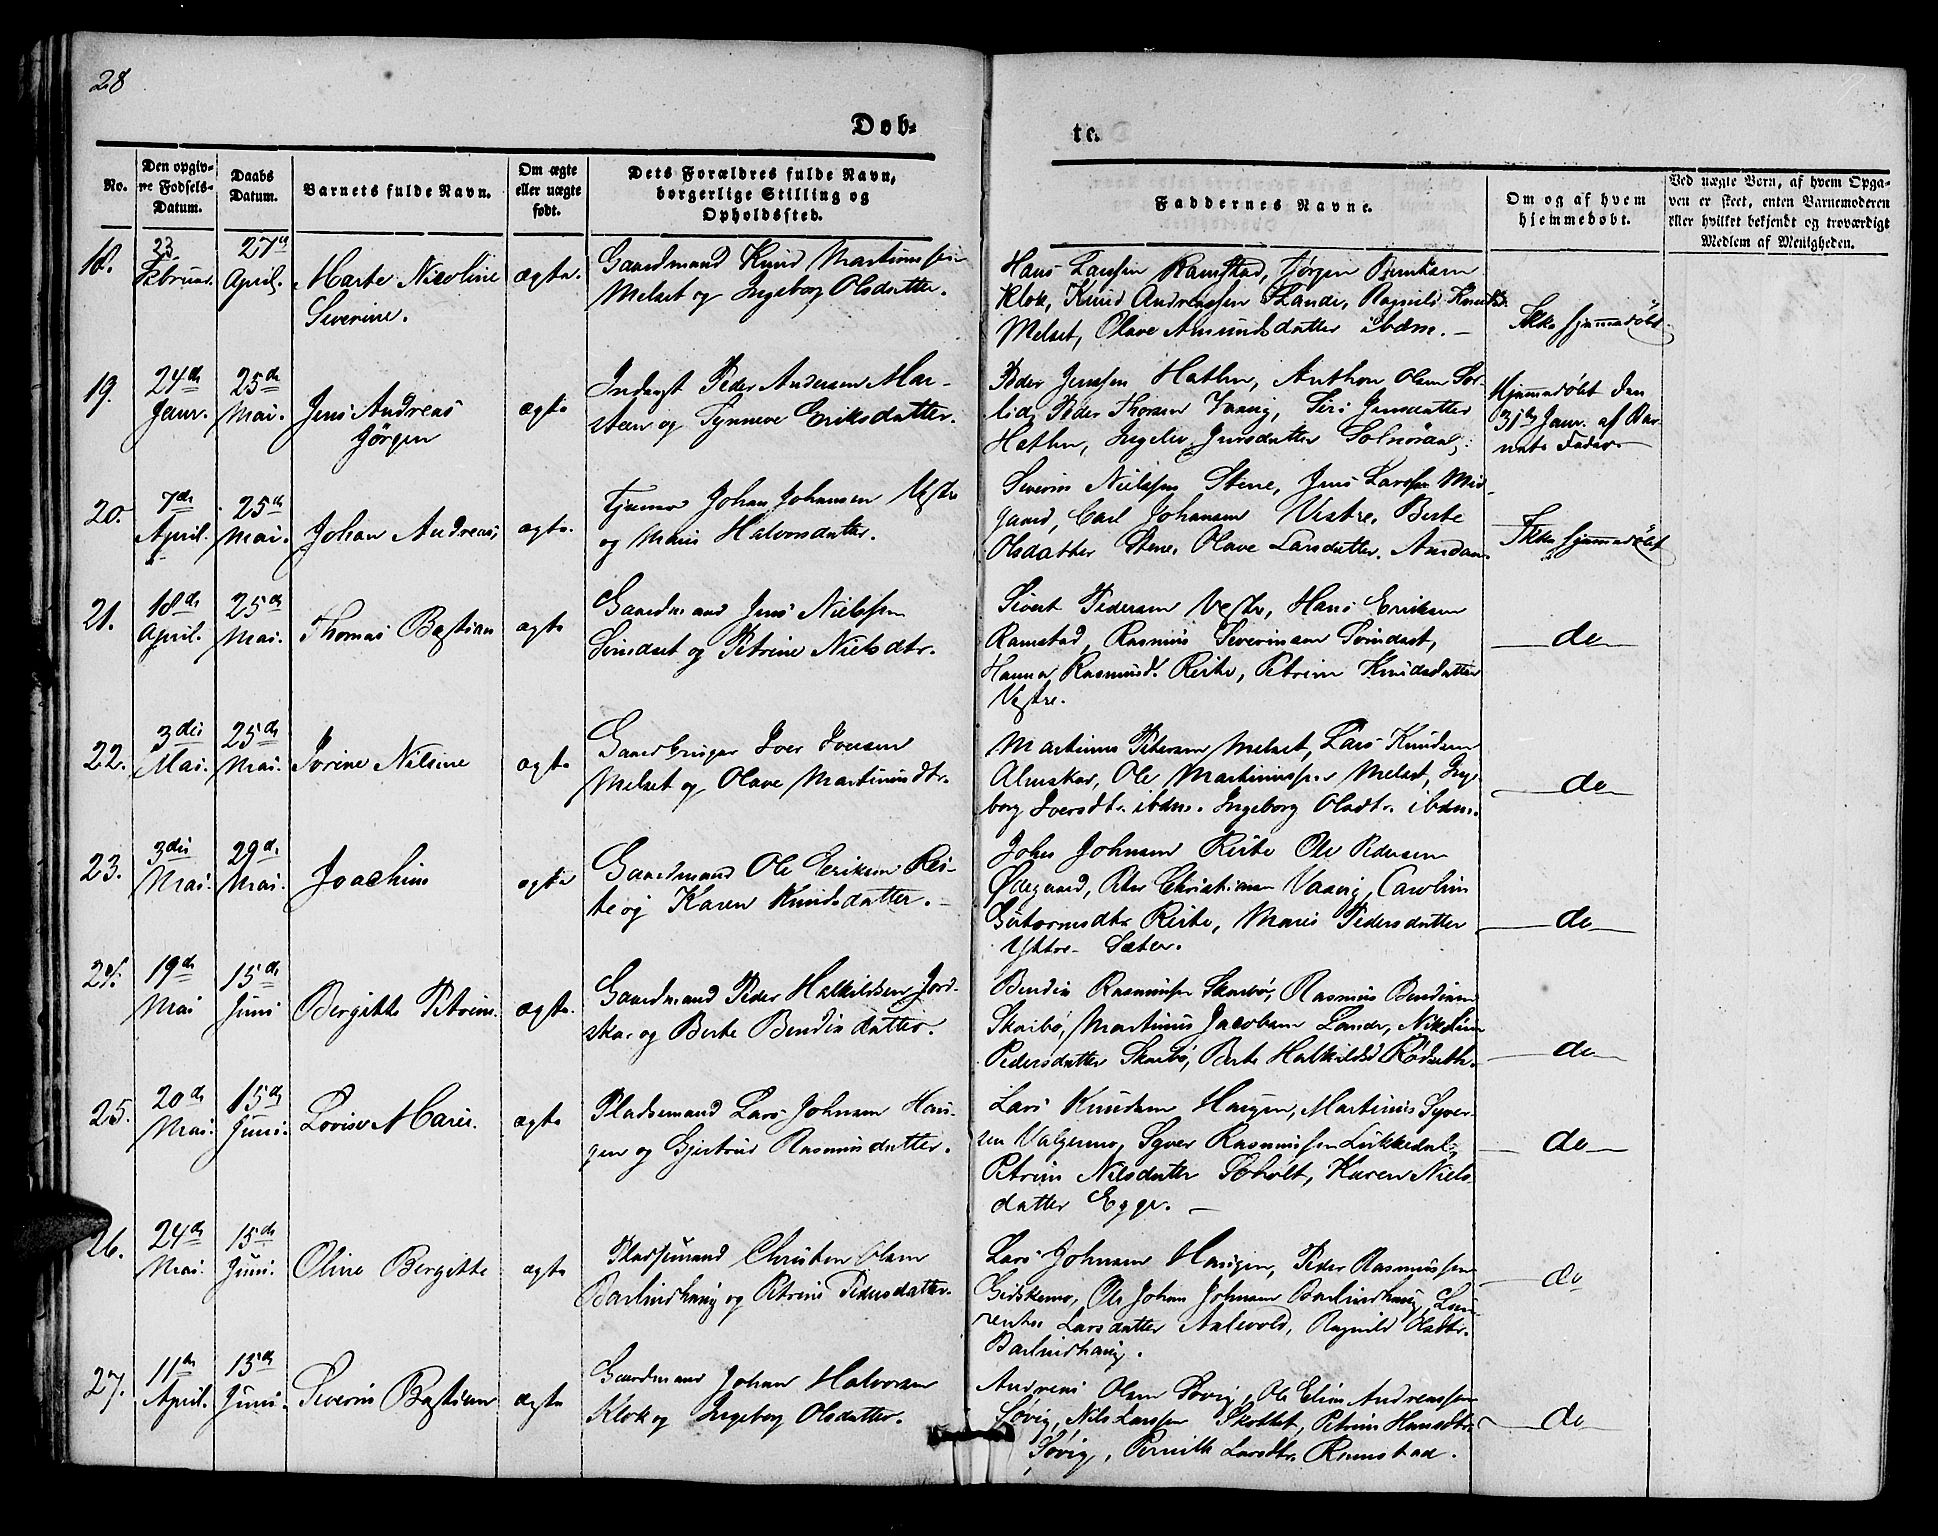 28
Døb-
te.
No.
Den opgiv-
ne Fødsels-
Datum.
Daabs
Datum.
Barnets fulde Navn.
Om ægte
eller uægte
født.
Dets Forældres fulde Navn,
borgerlige Stilling og
Opholdssted.
Faddernes Navne.
Om og af hvem
hjemmedøbt.
Ved uægte Børn, af hvem Opga-
ven er skeet, enten Barnemoderen
eller hvilket bekjendt og troværdigt
Medlem af Menigheden.
18.
23
Februar.
27
April.
Marte Nicoline
Severine.
ægte.
Gaardmand Knud Martinussen
Melset og Ingeborg Olsdatter.
Hans Larssen Ramstad, Jørgen Berntsen
Klok, Knud Andreassen Lande, Ragnild Knudsd.
Melset, Olave Amundsdatter ibdm.
Ikke hjemmedøbt
19.
24de
Janr.
25de
Mai.
Jens Andreas
Jørgen
ægte
Inderst Peder Andersen Mar-
steen og Synneve Eriksdatter.
Peder Jenssen Hathn, Anthon Olsen Sol-
lid, Peder Thorsen Vaavig, Siri Jensdatter
Hathn, Ingelev Jensdatter Solnørdal,
Hjemmedøbt den
31te Janr. af Bar-
nets Fader.
20.
7de
April.
25de
Mai.
Johan Andreas,
ægte.
Tjener Johan Johansen Vestre
og Maris Halvorsdatter.
Severin Nielssen Stene, Jens Larssen Mid-
gaard, Carl Johansen Vestre, Berte
Olsdatter Stene, Olave Larsdatter Amdam.
Ikke hjemmedøbt
21.
18de
April.
25de
Mai.
Thomas Bastian
ægte
Gaardmand Jens Nielssen
Svindset og Petrine Nielsdtr.
Sivert Pedersen Vestre, Hans Eriksen
Ramstad, Rasmus Severinsen Svindset,
Hanna Rasmusd. Reite, Petrine Knudsdatter
Vestre.
de
22.
3die
Mai.
25de
Mai.
Jørine Nilsine
ægte
Gaardbruger Iver Iversen
Melset og Olave Martinusdtr.
Martinus Petersen Melset, Lars Knudsen
Almskar, Ole Martinussen Melset, Inge-
borg Iversdtr. ibdm. Ingeborg Olsdtr. ibdm.
de
23.
3die
Mai.
29de
Mai.
Joachim
ægte
Gaardmand Ole Eriksen Rei-
te og Karen Knudsdatter.
John Johnsen Reite Ole Pedersen
Ødegaard, Peter Christiansen Vaavig, Caroline
Guttormsdtr. Reite, Maris Pedersdatter
Yttre-Sæter.
de
24.
19de
Mai
15de
Juni
Bergitte Petrine.
ægte.
Gaardmand Peder Halkildsen Jord-
skar og Berte Bendixdatter.
Bendix Rasmussen Skarbø, Rasmus Bendixsen
Skarbø, Martinus Jacobsen Lande, Nikoline
Pedersdatter Skarbø, Berte Halkildsd. Rødseth.
de
25.
20de
Mai.
15de
Juni.
Lovise Marie.
ægte
Pladsemand Lars Johnsen Hau-
gen og Gjertrud Rasmusdatter.
Lars Knudsen Haugen, Martinus Syver-
sen Valgermo, Syver Rasmussen Lukkedal,
Petrine Nilsdatter Soholt, Karen Niels-
datter Egge.
de
26.
24de
Mai.
15de
Juni.
Oline Bergitte
ægte
Pladsemand Christen Olsen
Barlindhaug og Petrine Pedersdatter.
Lars Johnsen Haugen, Peder Rasmussen
Gidskemo, Ole Johan Johnsen Barlindhaug, Lau-
rentse Larsdatter Aalevold, Ragnild Olsdtr.
Barlindhaug.
de
27.
11te
April.
15de
Juni.
Severin Bastian
ægte
Gaardmand Johan Halvorsen
Klok og Ingeborg Olsdatter.
Andreas Olsen Søvig, Ole Elias Andreassen
Søvig, Nils Larssen Skottet, Petrine Hansdtr.
Søvig, Pernille Larsdtr. Ramstad.
de